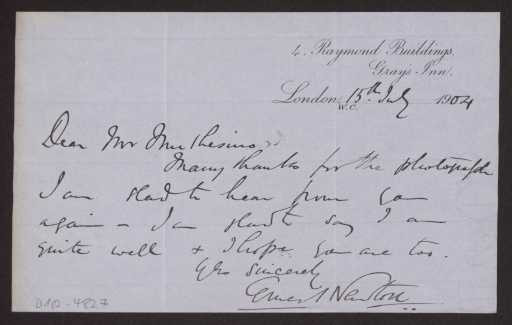 4. Raymond Buildings,
Gray's Inn,
London, 15th July 1904
W.C.
Dear Mr Muthesius
Many thanks for the photograph
I am glad to hear from you
again – I am glad to say I am
quite well & I hope you are too.
Yrs sincerely
Ernest Newton
D102-4827